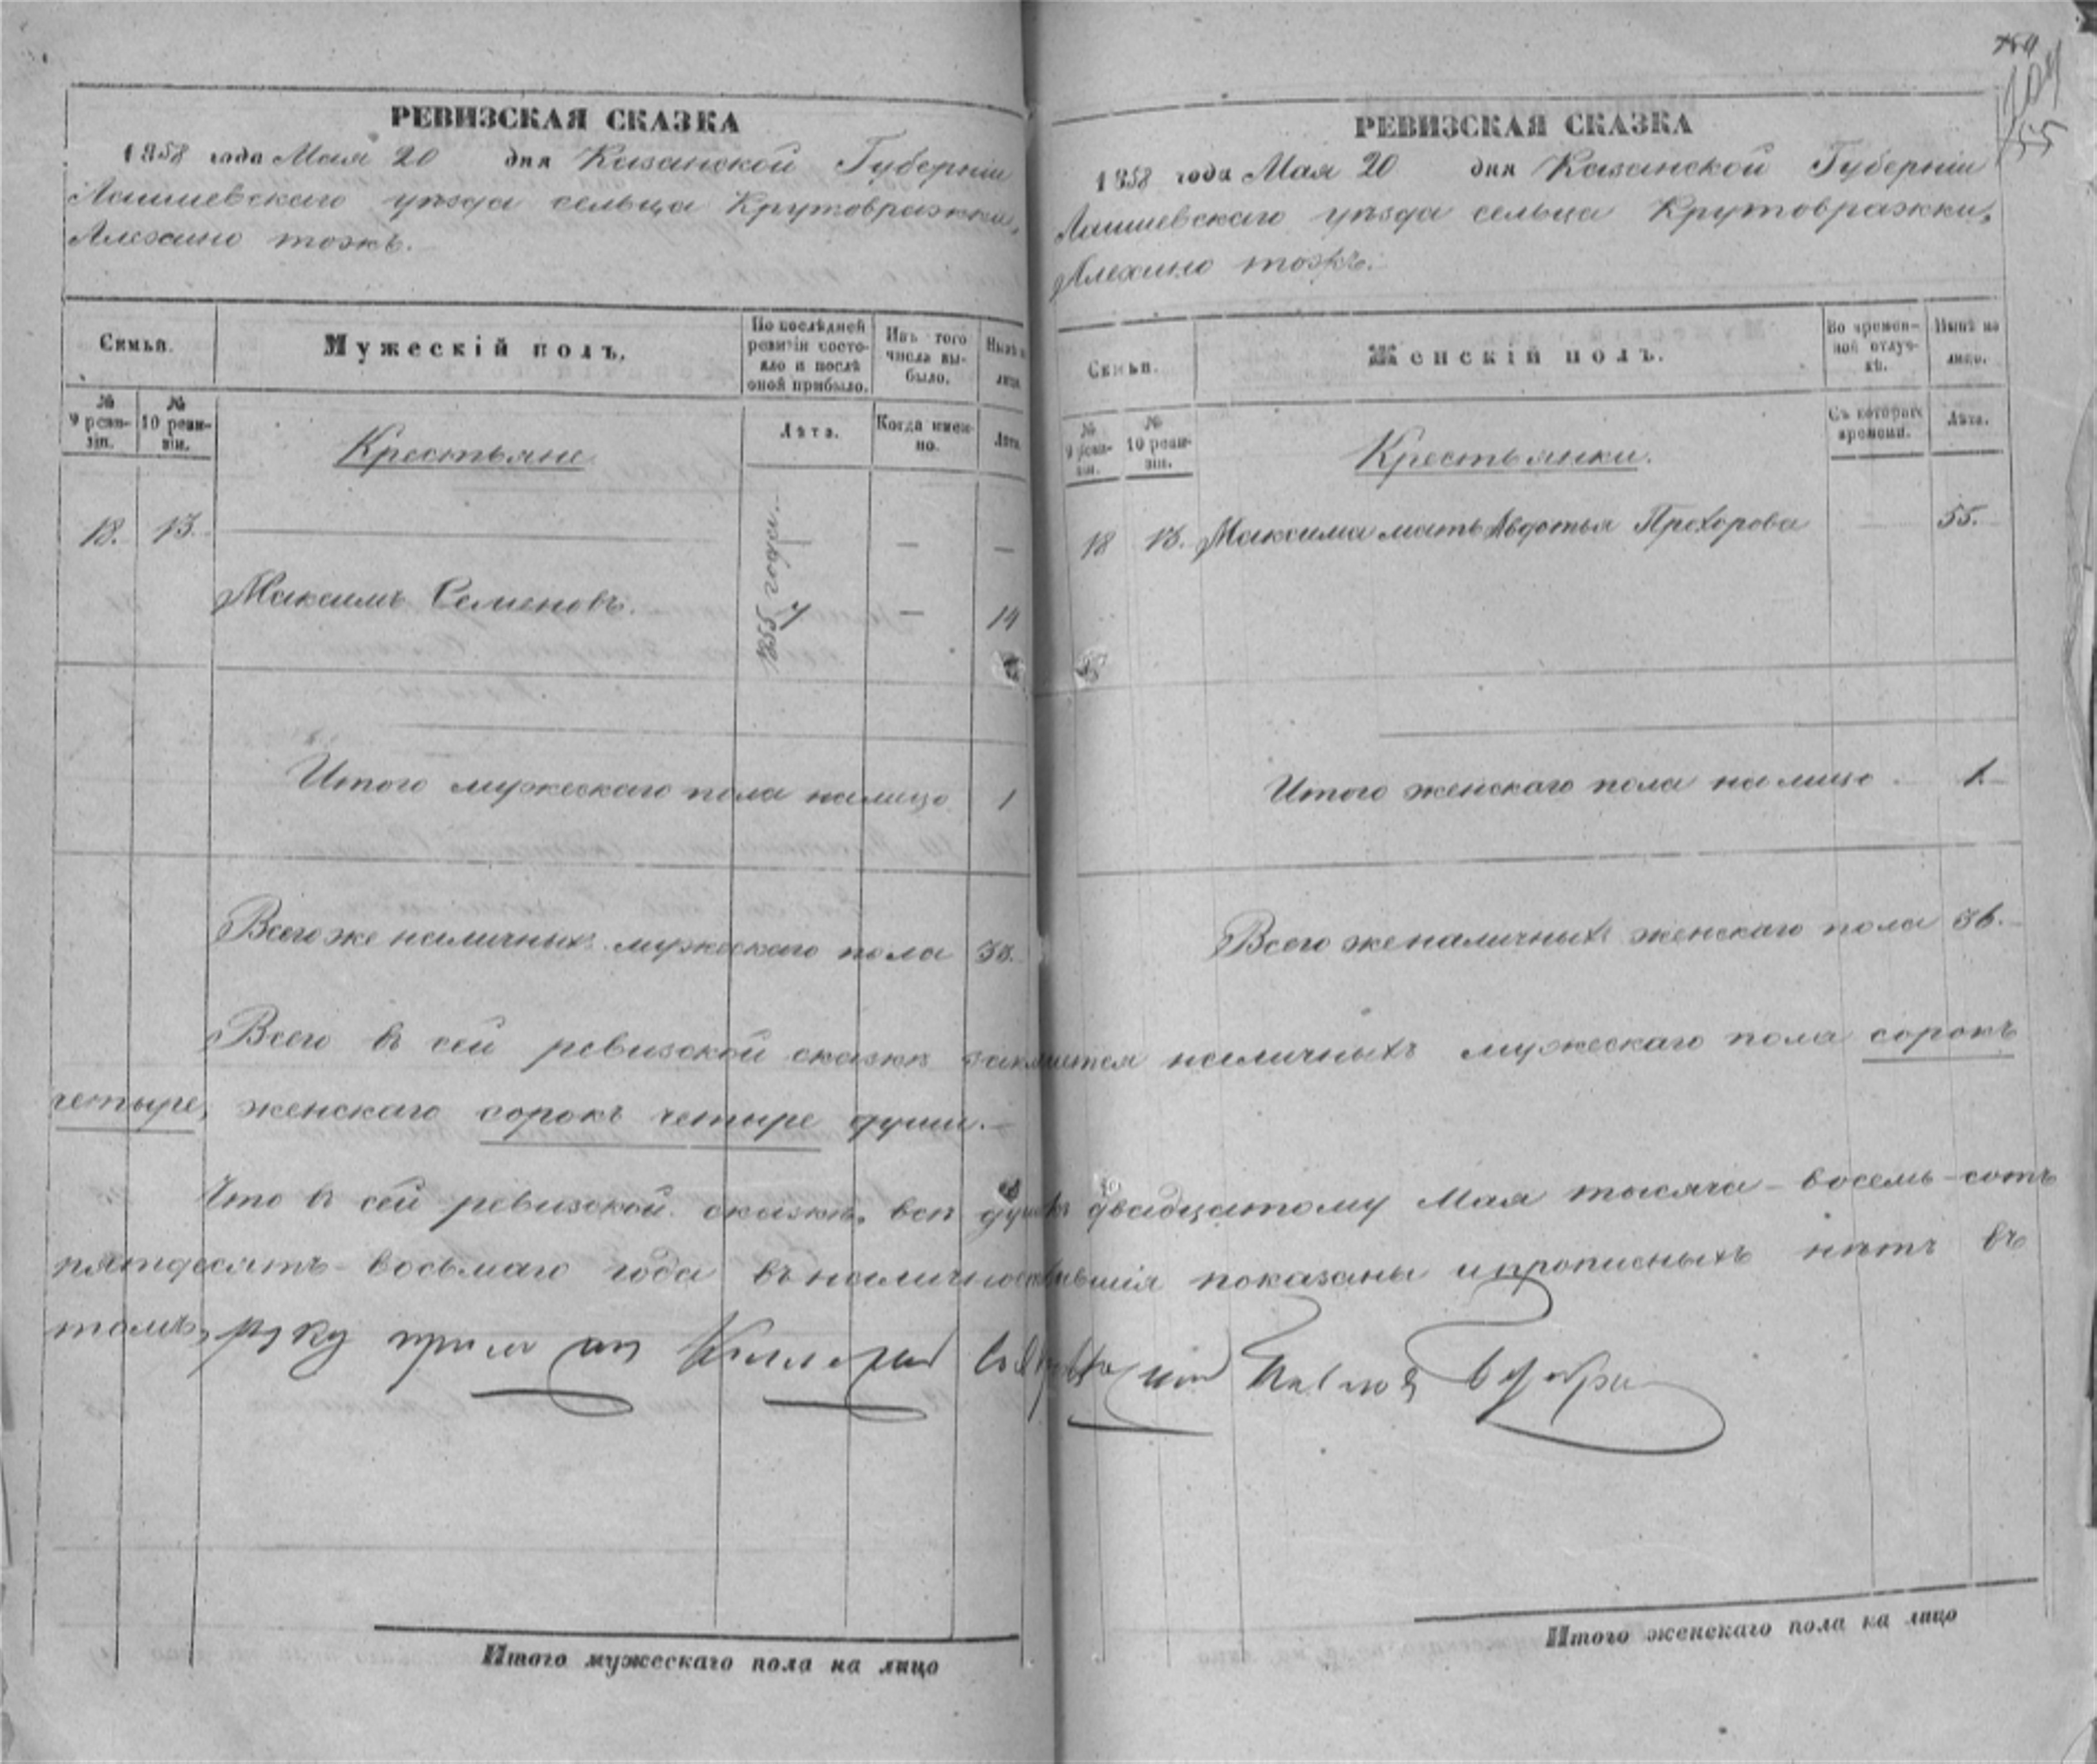 РЕВИЗСКАЯ СКАЗКА
1858 года Мая 20 дня Казанской Губерніи
Лаишевскаго уѣзда сельца Крутовражки,
Алехино тожъ.
Семьи.
Мужескій полъ.
По послѣдней ревизіи состояло и послѣ оной прибыло.
Изъ того числа выбыло.
Нынѣ на лицо.
№ 9 ревизіи.
№ 10 ревизіи.
Крестьяне
Лѣта.
Когда именно.
Лѣта.
18. 13. — —
1855 года.
Максимъ Семеновъ. 7 — 14
Итого мужескаго пола налицо 1
Всего же наличныхъ мужескаго пола 38.
РЕВИЗСКАЯ СКАЗКА
1858 года Мая 20 дня Казанской Губерніи
Лаишевскаго уѣзда сельца Крутовражки,
Алехино тожъ.
Семьи.
Женскій полъ.
Во временной отлучкѣ.
Нынѣ на лицо.
№ 9 ревизіи.
№ 10 ревизіи.
Крестьянки.
Съ котораго времени.
Лѣта.
18 13. Максима мать Авдотья Прохорова — 55.
Итого женскаго пола на лицо 1.
Всего же наличныхъ женскаго пола 36.
Всего въ сей ревизской сказкѣ значится наличныхъ мужескаго пола сорокъ
четыре, женскаго сорокъ четыре души.
Что въ сей ревизской сказкѣ, всѣ души къ двадцатому Мая тысяча-восемь-сотъ
пятдесятъ-восьмаго года въ наличности бывшія показаны и прописныхъ нѣтъ въ
томъ, руку
Итого мужескаго пола на лицо
Итого женскаго пола на лицо
55